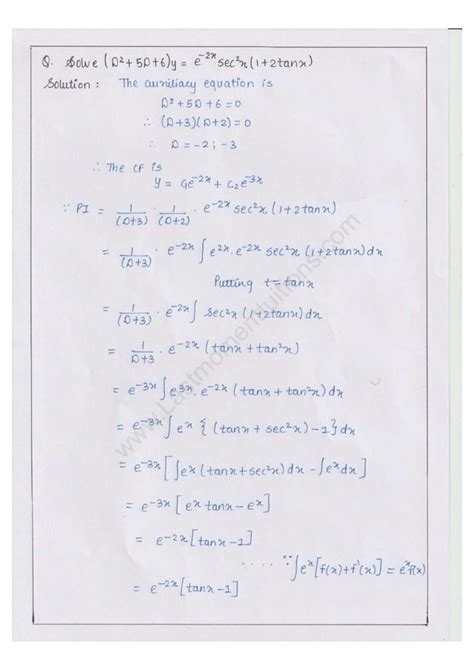 Q. Solve (D²+5D+6)y = e⁻²ˣ sec²x(1+2tanx)
Solution : The auxiliary equation is
D²+5D+6=0
∴ (D+3)(D+2)=0
∴ D = -2 ; -3
∴ The CF is
y = C₁e⁻²ˣ + C₂e⁻³ˣ
∵ PI = 1/(D+3) · 1/(D+2) · e⁻²ˣ sec²x (1+2tanx)
= 1/(D+3) · e⁻²ˣ ∫ e²ˣ. e⁻²ˣ sec²x (1+2tanx)dx
Putting t=tanx
= 1/(D+3) · e⁻²ˣ ∫ sec²x (1+2tanx)dx
= 1/D+3 · e⁻²ˣ (tanx+tan²x)
= e⁻³ˣ ∫ e³ˣ. e⁻²ˣ (tanx + tan²x)dx
= e⁻³ˣ ∫ eˣ { (tanx + sec²x) -1} dx
= e⁻³ˣ [ ∫eˣ (tanx+sec²x)dx - ∫eˣdx ]
= e⁻³ˣ [ eˣ tanx - eˣ ]
= e⁻²ˣ [tanx -1]
. . . . ∵ ∫eˣ[f(x)+f'(x)] = eˣf(x)
= e⁻²ˣ [tanx -1]
www.Lastmomenttuitions.com